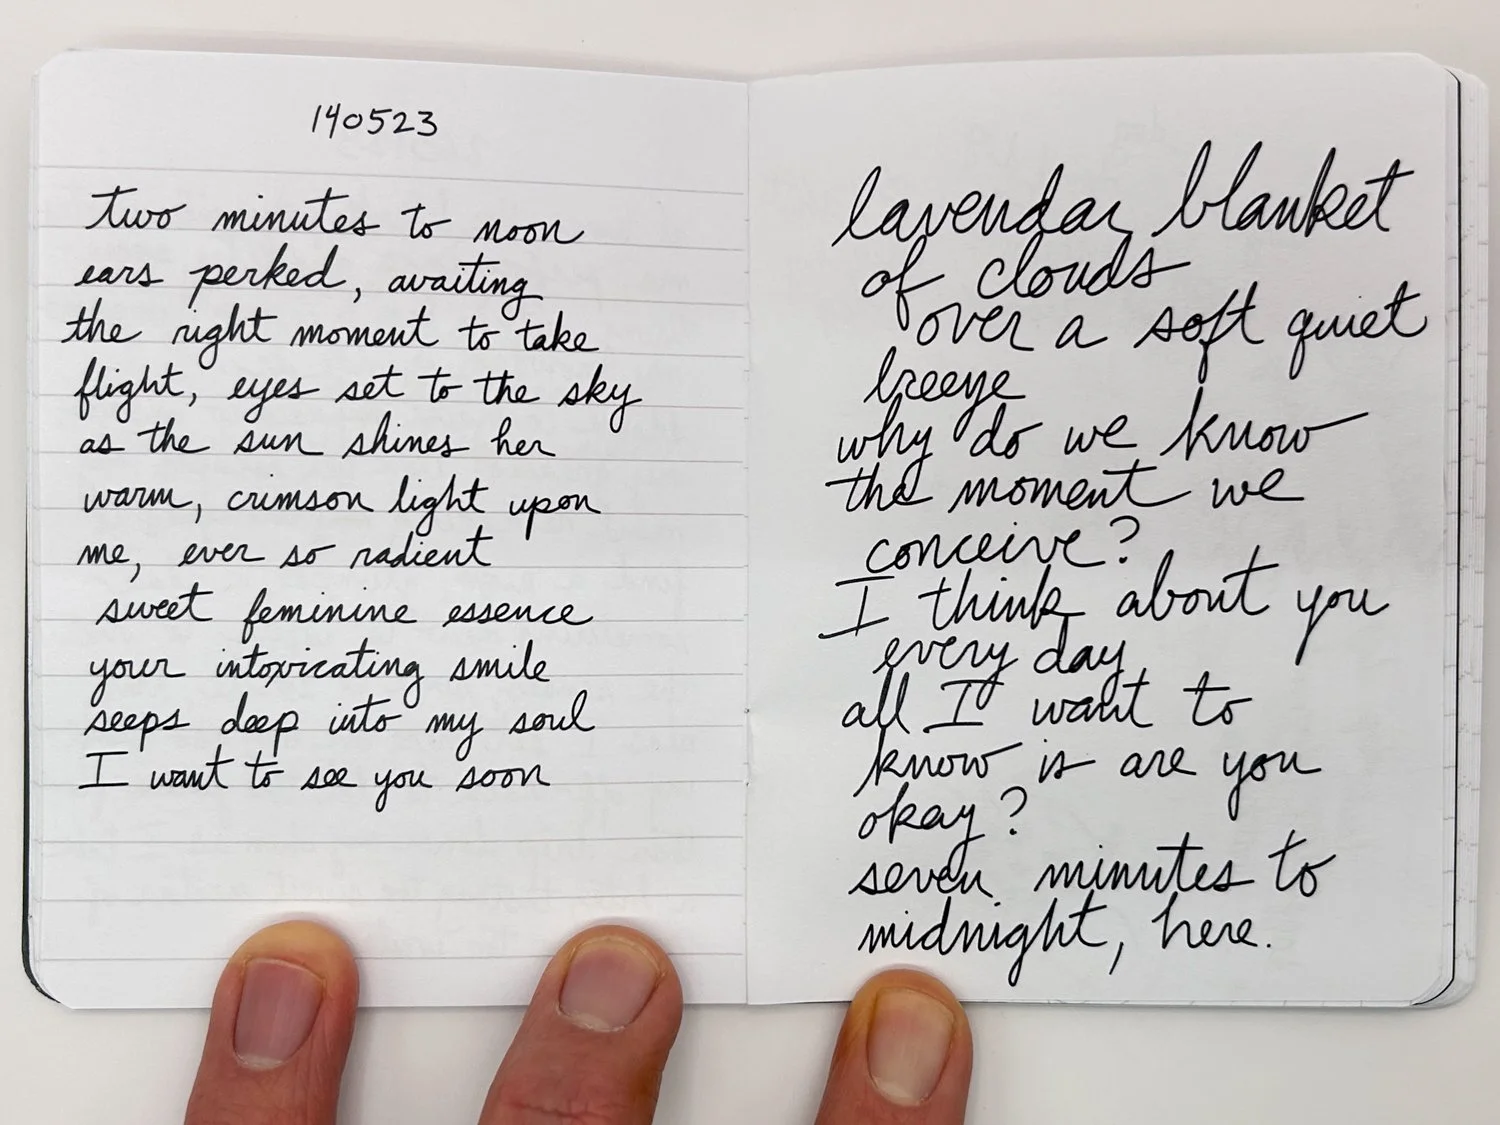 140523
two minutes to noon
ears perked, awaiting
the right moment to take
flight, eyes set to the sky
as the sun shines her
warm, crimson light upon
me, ever so radient
sweet feminine essence
your intoxicating smile
seeps deep into my soul
I want to see you soon
lavendar blanket
of clouds
over a soft quiet
breeze
why do we know
the moment we
conceive?
I think about you
every day
all I want to
know is are you
okay?
seven minutes to
midnight, here.